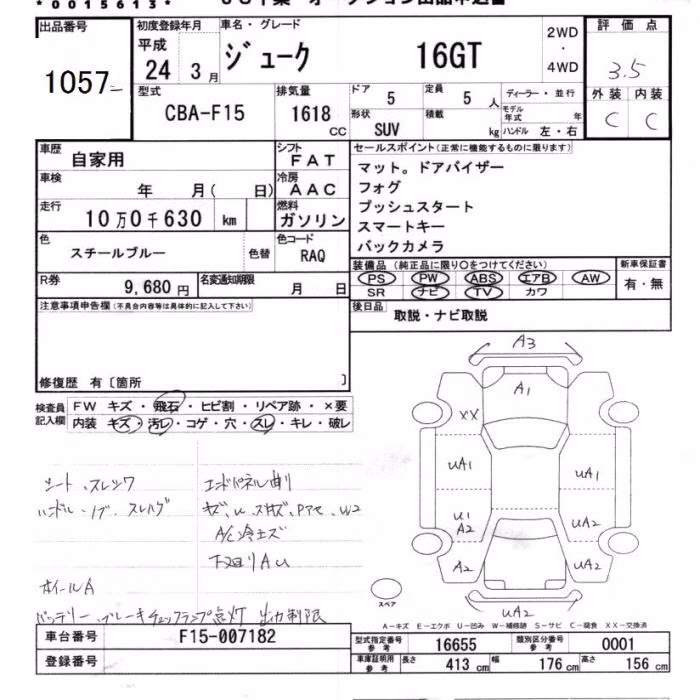 *0015613*
出品番号 初度登録年月 車名・グレード 2WD・4WD 評価点
1057 平成 24 3月 ジューク 16GT 3.5
型式 排気量 ドア 定員 ディーラー・並行 外装 内装
CBA-F15 1618 CC 5 5人 モデル年式 年 C C
形状 積載 kg ハンドル 左・右
SUV
車歴 自家用 シフト FAT セールスポイント(正常に機能するものに限ります)
車検 年 月( 日) 冷房 AAC マット。ドアバイザー
フォグ
走行 10万0千630 km 燃料 ガソリン プッシュスタート
スマートキー
色 スチールブルー 色替 色コード RAQ バックカメラ
装備品(純正品に限り○をつけてください) 新車保証書
R券 9,680円 名変通知期限 月 日 PS PW ABS エアB AW 有・無
SR ナビ TV カワ
注意事項申告欄(不具合内容等は具体的に記入して下さい) 後日品 取説・ナビ取説
修復歴 有〔箇所 〕
検査員記入欄 FW キズ・飛石・ヒビ割・リペア跡・×要
内装 キズ・汚レ・コゲ・穴・スレ・キレ・破レ
A3
A1
XX
UA1 UA1
U1 A2 UA2
A2 UA2
UA2
スペア
シート、スレシワ エンドパネル曲り
A/C冷エズ
下廻りAU
ホイールA
バッテリー、ブレーキチェックランプ点灯 出力制限
A-キズ E-エクボ U-凹み W-補修跡 S-サビ C-腐食 XX-交換済
車台番号 F15-007182 型式指定番号 参考 16655 類別区分番号 参考 0001
登録番号 車庫証明用 参考 長さ 413 cm 幅 176 cm 高さ 156 cm